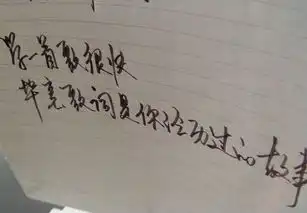 学一首歌很快
毕竟歌词是你经历过的故事